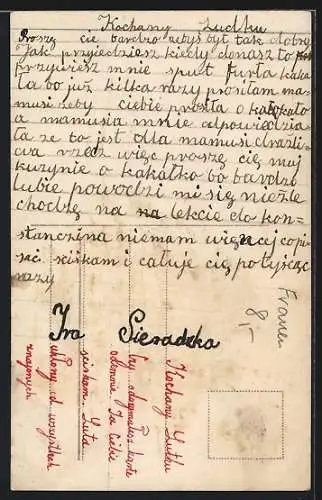 Kochany Ludku
Proszę cie bardzo żebyś był tak dobry
Jak przyjedziesz kiedy donasz to
przywiesz mnie funta kaka
ła bo już kilka razy prosiłam ma-
musi żeby ciebie prosiła o kakało
a mamusia mnie odpowiedzia
ła że to jest dla mamusi draźli-
wa rzecz więc proszę cię mój
kuzynie o kakałko bo bardzo
lubie powodzi mi się nieźle
chodzę na na lekcie do kon-
stanczina niemam więcej co pi-
sać ściskam i całuje cię po tysiąc
razy
Ira Sieradzka
Franen
8,-
Kochany Lutku
Czy otrzymałeś karte
odemnie. Ja Ciebie
ściskam. Luta
ukłony od wszystkich
znajomych